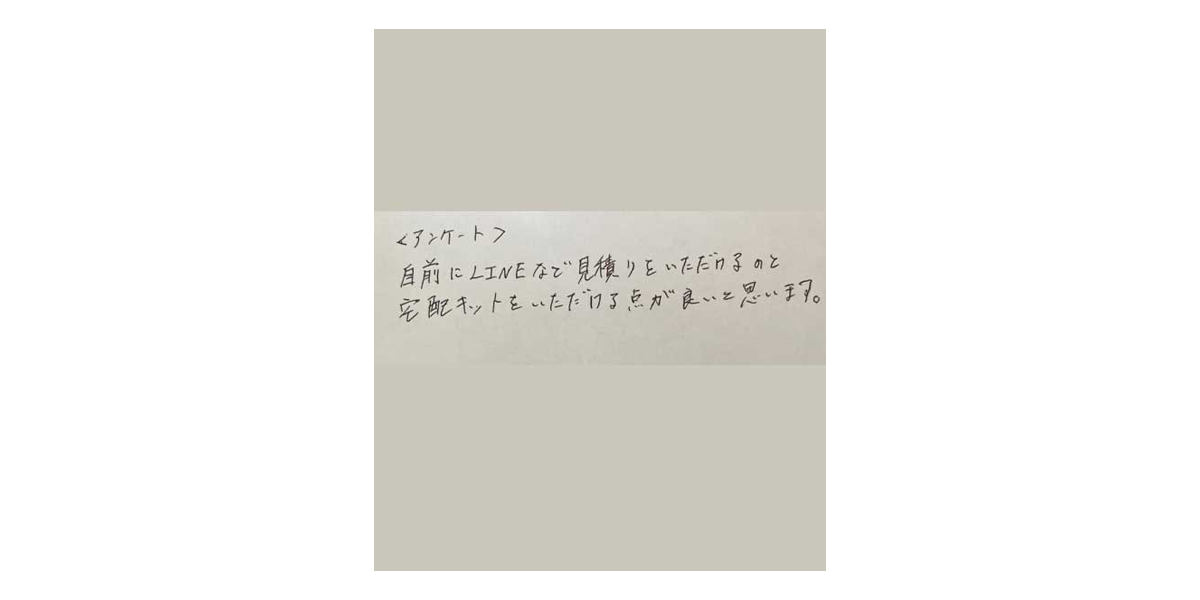 <アンケート>
自前にLINEなどで見積りをいただけるのと
宅配キットをいただける点が良いと思います。